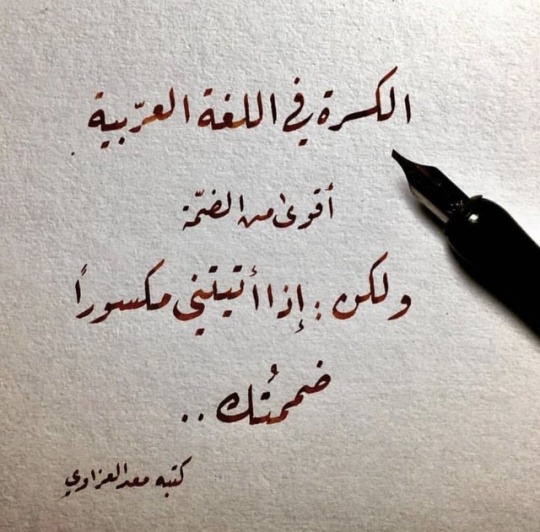 الكسرة في اللغة العرّبية
أقوىٰ من الضمّة
ولكن : إذا أتيتني مكسوراً
ضممتُك ..
كتبه معد العزاوي